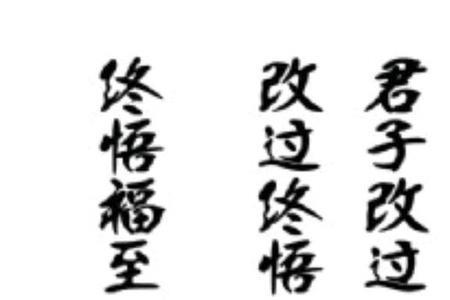 君子改过
改过终悟
终悟福至